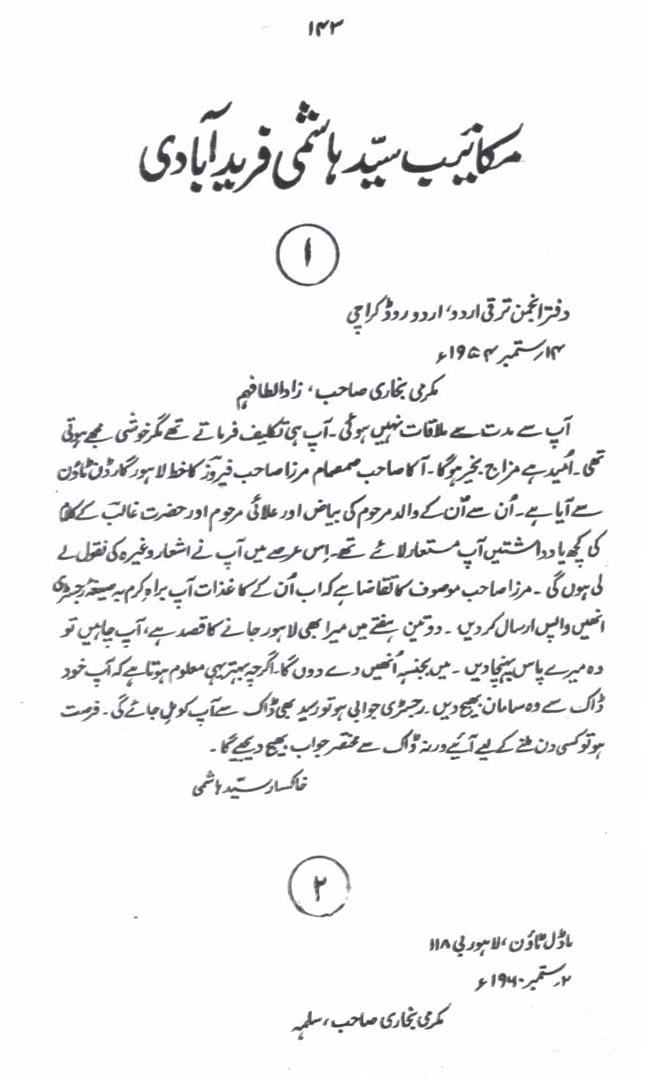 ۱۴۳
مکاتیب سیّد ہاشمی فریدآبادی
۱
دفتر انجمن ترقی اردو، اردو روڈ کراچی
۱۴ ستمبر ۱۹۵۴ء
مکرمی بخاری صاحب، زاد الطافہم
آپ سے مدت سے ملاقات نہیں ہوئی۔ آپ ہی تکلیف فرماتے تھے مگر خوشی مجھے ہوتی
تھی۔ اُمید ہے مزاج بخیر ہوگا۔ آکا صاحب صمصام مرزا صاحب فیروز کا خط لاہور گارڈن ٹاؤن
سے آیا ہے۔ اُن سے اُن کے والد مرحوم کی بیاض اور علائی مرحوم اور حضرت غالب کے کلام
کی کچھ یادداشتیں آپ مستعار لائے تھے۔ اِس عرصے میں آپ نے اشعار وغیرہ کی نقول لے
لی ہوں گی۔ مرزا صاحب موصوف کا تقاضا ہے کہ اب اُن کے کاغذات آپ براہِ کرم بہ صیغۂ رجسٹری
انھیں واپس ارسال کر دیں۔ دو تین ہفتے میں میرا بھی لاہور جانے کا قصد ہے، آپ چاہیں تو
وہ میرے پاس پہنچا دیں۔ میں بجنسہٖ اُنھیں دے دوں گا۔ اگرچہ بہتر یہی معلوم ہوتا ہے کہ آپ خود
ڈاک سے وہ سامان بھیج دیں۔ رجسٹری جوابی ہو تو رسید بھی ڈاک سے آپ کو مل جائے گی۔ فرصت
ہو تو کسی دن ملنے کے لیے آئیے ورنہ ڈاک سے مختصر جواب بھیج دیجیے گا۔
خاکسار سیّد ہاشمی
۲
ماڈل ٹاؤن، لاہور بی ۱۱۸
۲ ستمبر ۱۹۶۰ء
مکرمی بخاری صاحب، سلمہہ